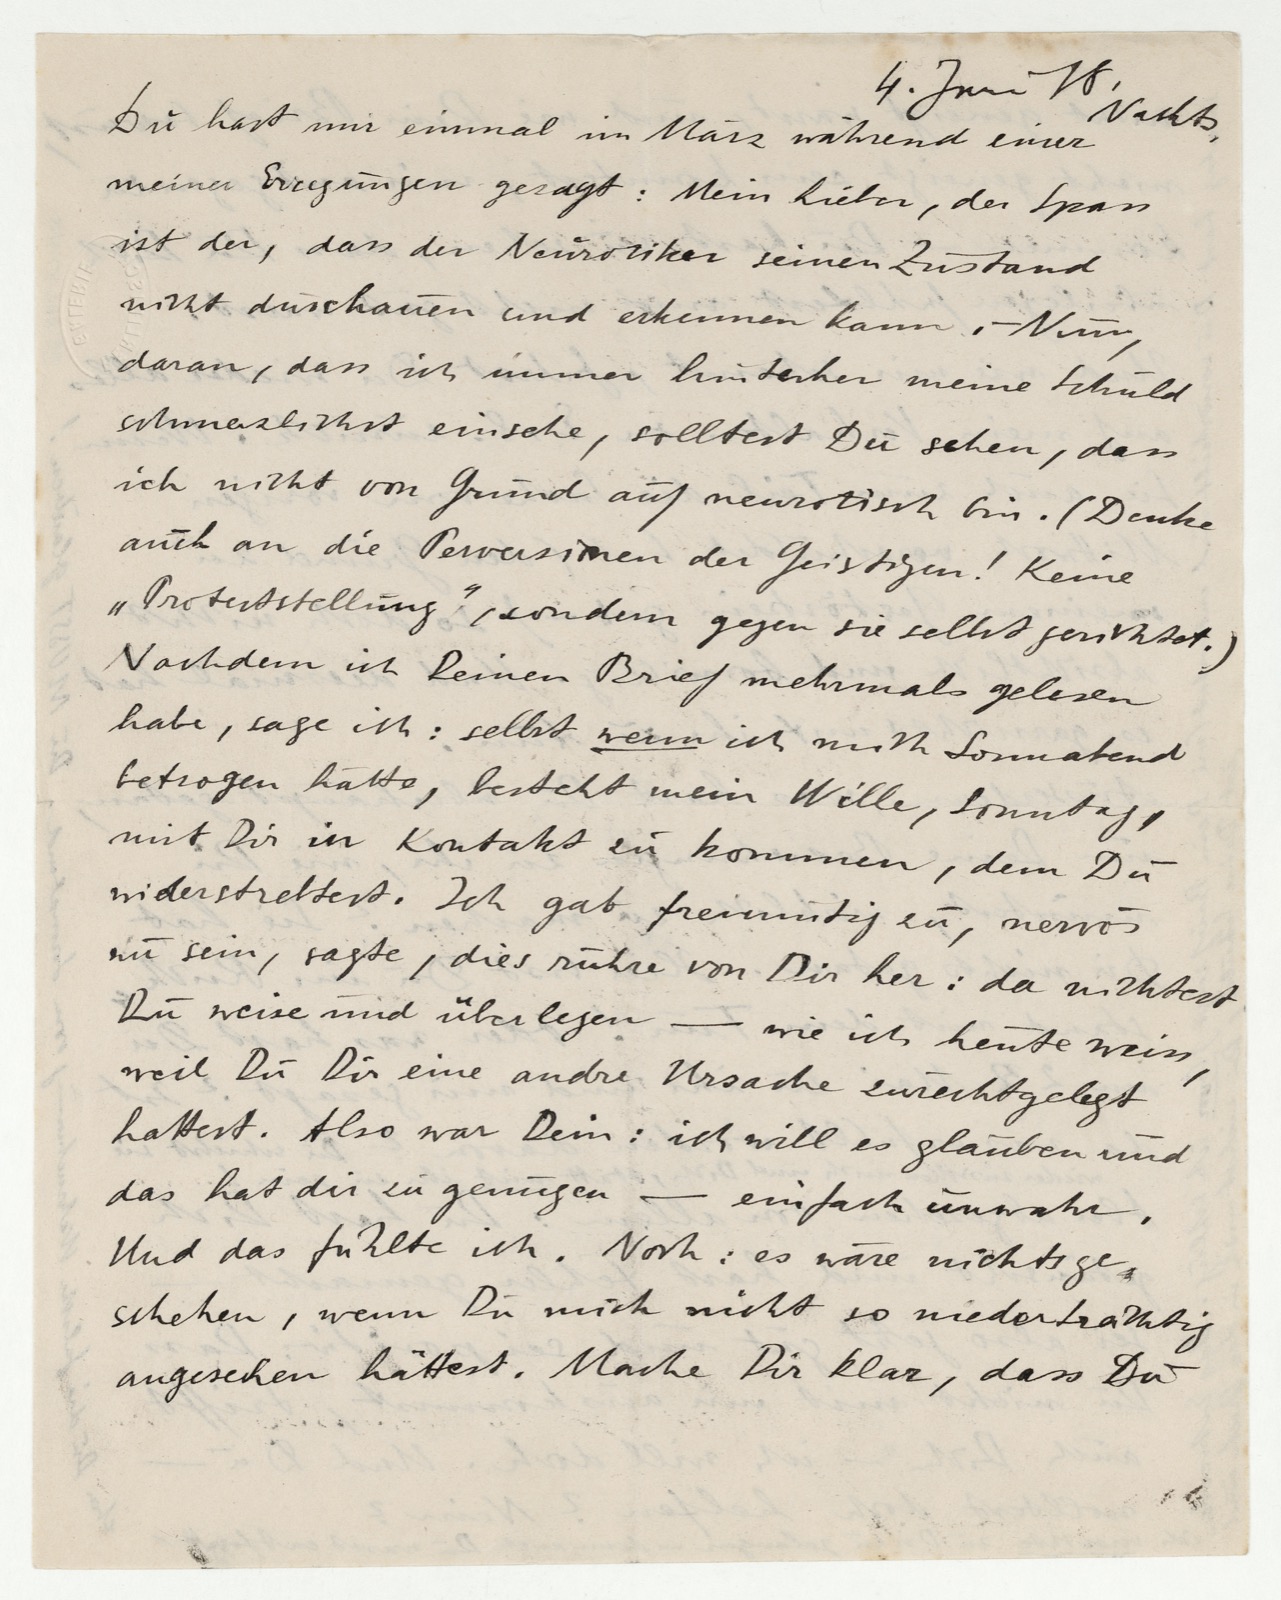 4. Juni 18.
Nachts.
Du hast mir einmal im März während einer
meiner Erregungen gesagt: Mein Lieber, der Spass
ist der, dass der Neurotiker seinen Zustand
nicht duschauen und erkennen kann. – Nun,
daran, dass ich immer hinterher meine Schuld
schmerzlichst einsehe, solltest Du sehen, dass
ich nicht von Grund auf neurotisch bin. (Denke
auch an die Perversionen der Geistigen! Keine
„Proteststellung“, sondern gegen sie selbst gerichtet.)
Nachdem ich Deinen Brief mehrmals gelesen
habe, sage ich: selbst wenn ich mich Sonnabend
betrogen hätte, besteht mein Wille, Sonntag,
mit Dir in Kontakt zu kommen, dem Du
widerstrebtest. Ich gab freimütig zu, nervös
zu sein, sagte, dies rühre von Dir her: da nichtest
Du weise und überlegen — wie ich heute weiss,
weil Du Dir eine andre Ursache zurechtgelegt
hattest. Also war Dein: ich will es glauben und
das hat dir zu genügen — einfach unwahr.
Und das fühlte ich. Noch: es wäre nichts ge-
schehen, wenn Du mich nicht so niederträchtig
angesehen hättest. Mache Dir klar, dass Du